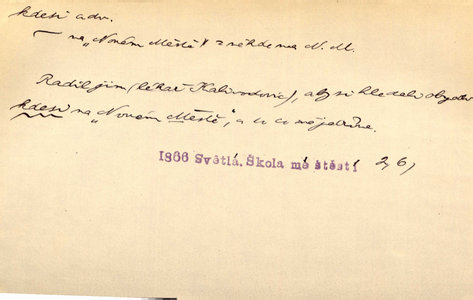 kdesi adv.
— na „Novém Městě" = někde na N. M.
Radil jim (lékař Kalivodovic), aby si hledali obydlí
kdesi na „Novém Městě", a to co nejdříve.
1866 Světlá. Škola mé štěstí 2, 6,